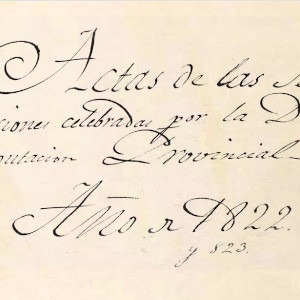 Actas de las Se
ciones celebradas por la D
putacion Provincial
Año de 1822.
y 823.